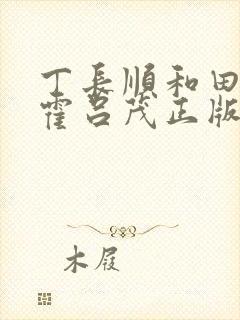 丁長順和田
霍呂茂正版
木屐